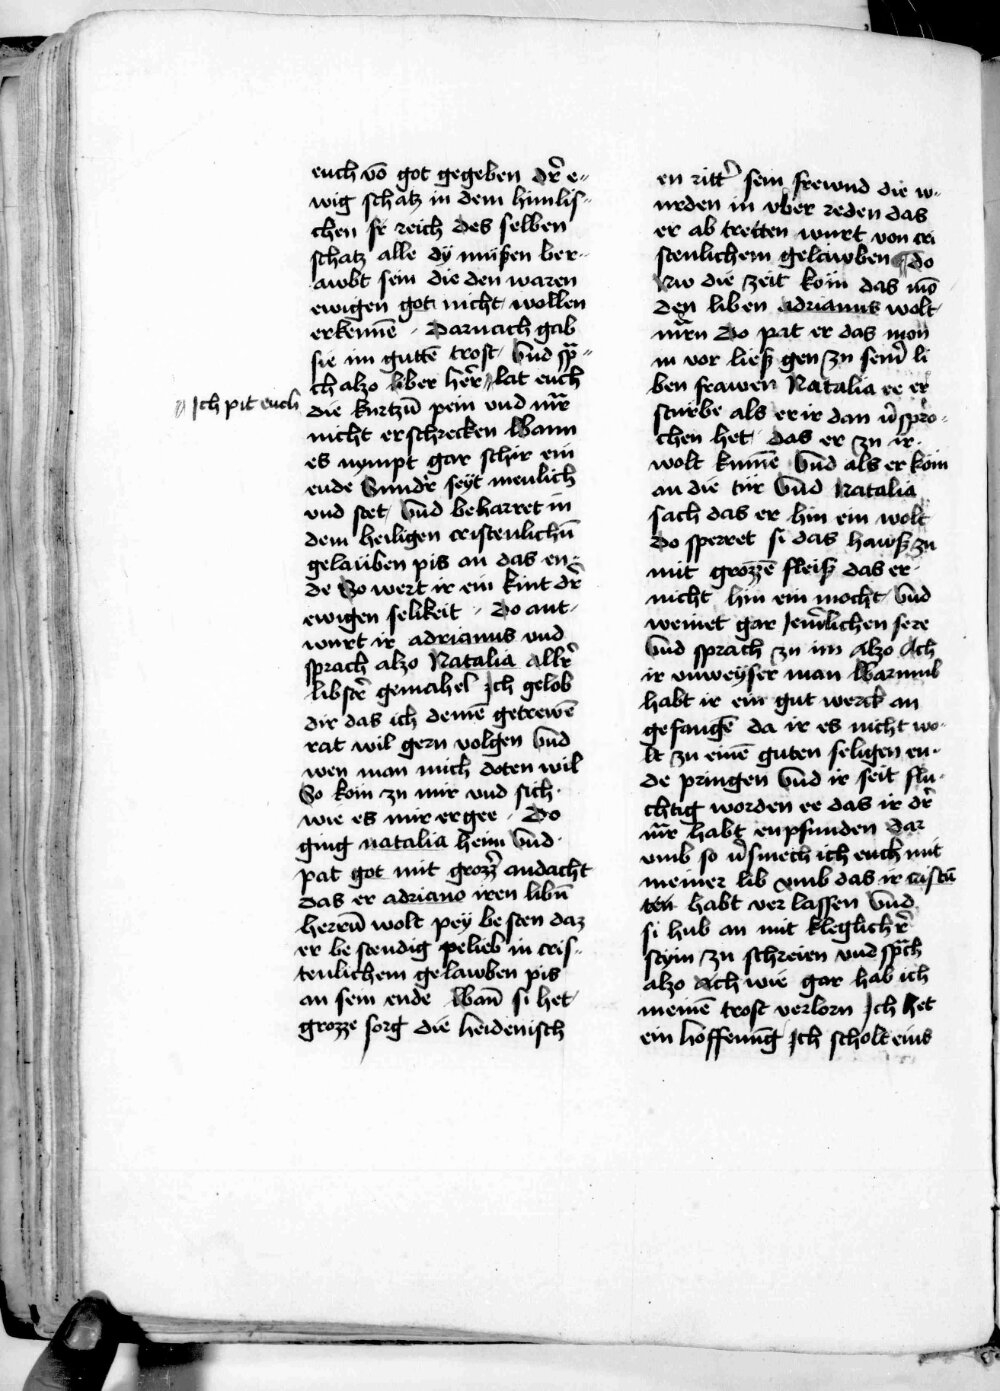 euch vō got gegeben dr̄ e-
wig schatz in dem himlis-
chen fr reich des selben
schatz alle dÿ müßen ber-
awbt sein die den waren
ewigen got nicht wollen
erkennē · Darnach gab
sie im guttē trost Vnd sp̄-
ch alzo liber her̄ lat euch
Ich pit euch
die kurtzū pein vnd mr̄
nicht erschrecken Wann
es nympt gar schir ein
ende Sundr̄ seÿt menlich
vnd stet Vnd beharret in
dem heiligen cristenlichū
gelaüben pis an das en-
de So wert ir ein kint dr̄
ewigen selikeit · Do ant-
wurt ir adrianus vnd
sprach alzo Natalia allr̄
libstr̄ gemahel Ich gelob
dir das ich deinē getrewē
rat wil gern volgen Vnd
wen man mich doten wil
So kom zu mir vnd sich
wie es mir ergee · Do
ging natalia heim Vnd
pat got mit grozr̄ andacht
das er adriano iren libn̄
herrn̄ wolt pey besten daz
er bestendig pelieb in cris-
tenlichem gelawben pis
an sein ende Wan̄ si het
grozze sorg die heidenisch
en ritt̄ sein frewnd die w-
urden in vber reden das
er ab tretten wurt von cri
stenlichem gelawben Do
nw die zeit kom das mō
den liben adrianus wolt
mr̄rn Do pat er das mon
in vor ließ gen zu sein̄ li
ben frawen Natalia ee er
sturbe als er ir dan v̄spro-
chen het das er zu ir
wolt kumē Vnd als er kom
an die tür Vnd Natalia
sach das er hin ein wolt
Do sperret si das hawß zu
mit grozzē fleiß das er
nicht hin ein mocht Vnd
weinet gar Iem̄lichen sere
Vnd sprach zu im Alzo Ach
ir vnweÿser man Warumb
habt ir ein gut werck an
gefangē da ir es nicht wo-
lt zu einē guten seligen en-
de pringen Vnd ir seit flu-
chtig worden ee das ir dr̄
mr̄r habt enpfunden Dar
vmb so v̄smech ich euch mit
meiner lib vmb das ir cristū
ten habt ver lassen Vnd
si hub an mit kleglichr̄
stym zu schreien vnd sp̄ch
alzo Ach wie gar hab ich
meinē trost verlorn Ich het
ein hoffenūg Ich scholt eins